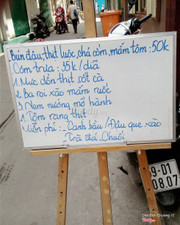 Bún đậu, thịt luộc, chả cốm, mắm tôm: 50k
Cơm trưa: 35k/dĩa
1. Mực dồn thịt sốt cà
2. Ba roi xào mắm ruốc
3. Nem nướng mỡ hành
4. Tôm rang thịt
Miễn phí: - Canh bầu / Đậu que xào
Trà đá, Chuối
9-D1
08.07